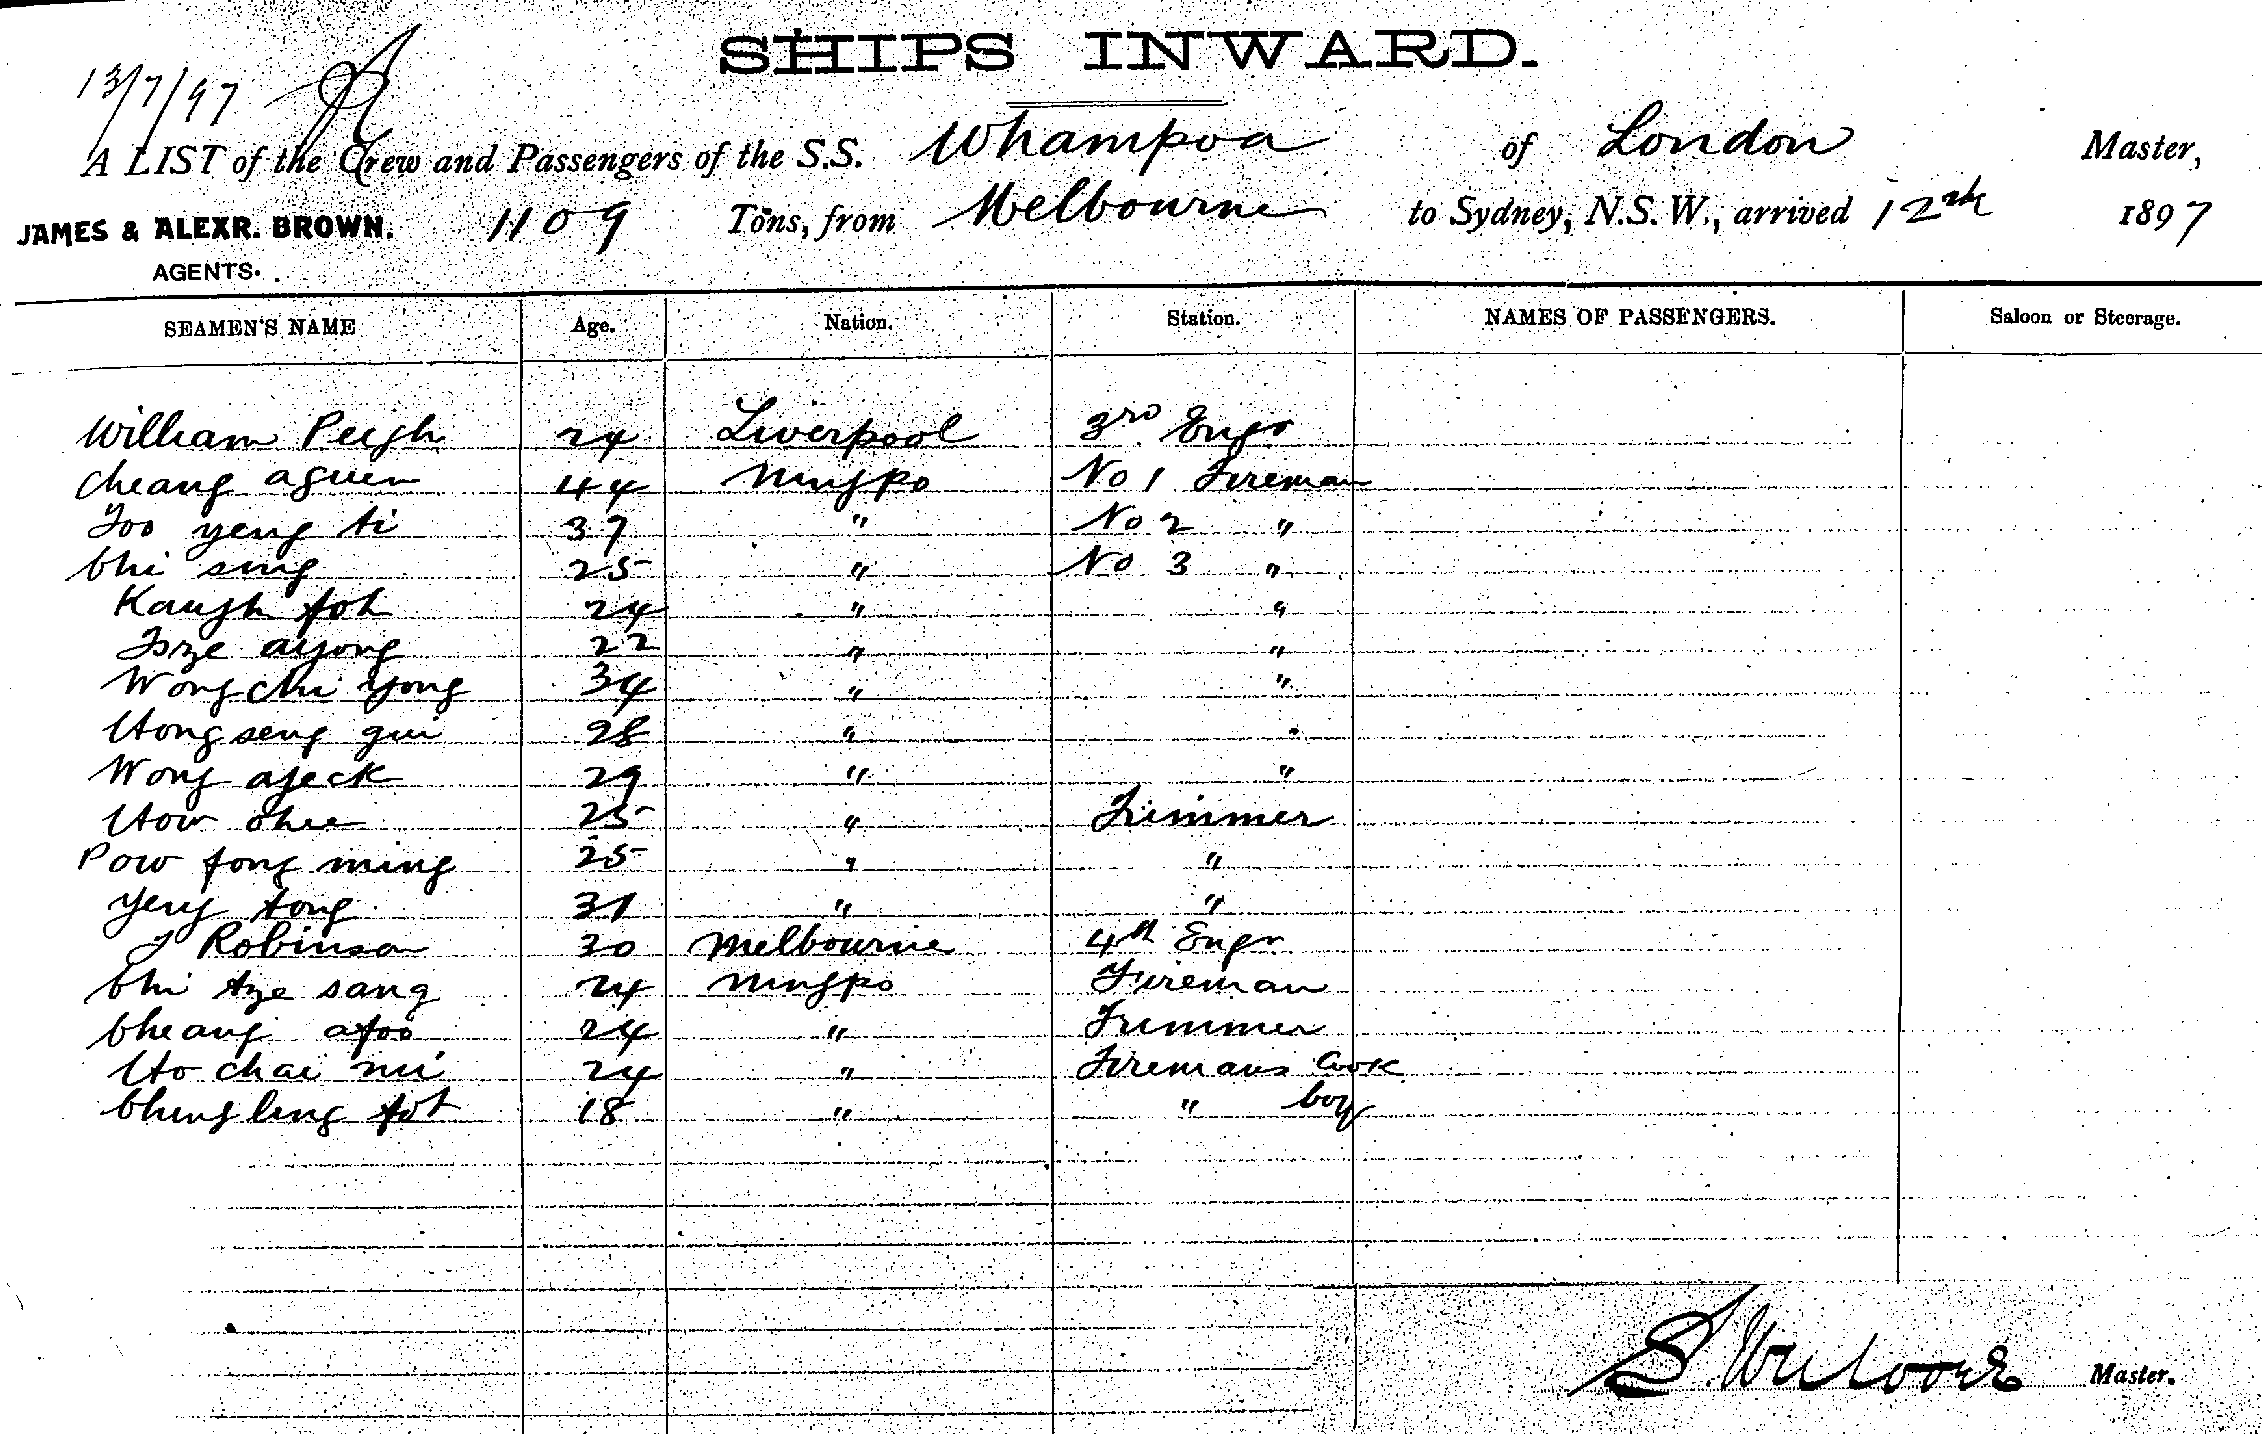 SHIPS INWARD.
13/7/97
A LIST of the Crew and Passengers of the S.S. Whampoa of London Master,
JAMES & ALEXR. BROWN. 1109 Tons, from Melbourne to Sydney, N.S.W., arrived 12th 1897
AGENTS.
SEAMEN'S NAME Age. Nation. Station. NAMES OF PASSENGERS. Saloon or Steerage.
William Pugh 24 Liverpool 3rd Engr
Cheang aguen 44 Ningpo No 1 Fireman
yeng ti 37 " No 2 "
Chi sing 25 " No 3 "
Kaugh foh 24 " "
ayong 22 " "
Wong chi yong 34 " "
Hong seng gui 28 " "
Wong ajeck 29 " "
How chee 25 " Trimmer
Pow fong ming 25 " "
yeng tong 31 " "
J Robinson 30 Melbourne 4th Engr
Chi tze sang 24 Ningpo Fireman
Cheang afoo 24 " Trimmer
Ho chai nii 24 " Firemans Cook
Ching ling foh 18 " " boy
Master.